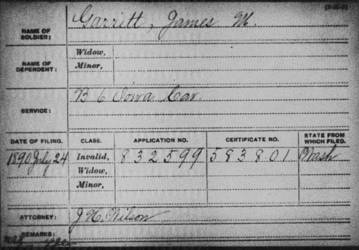 NAME OF SOLDIER: Garritt, James M.
NAME OF DEPENDENT: Widow,
Minor,
SERVICE: B 6 Iowa Cav.
DATE OF FILING. CLASS. APPLICATION NO. CERTIFICATE NO. STATE FROM WHICH FILED.
1890 July 24 Invalid, 832599 583801 Wash
Widow,
Minor,
ATTORNEY: J H Wilson
REMARKS: